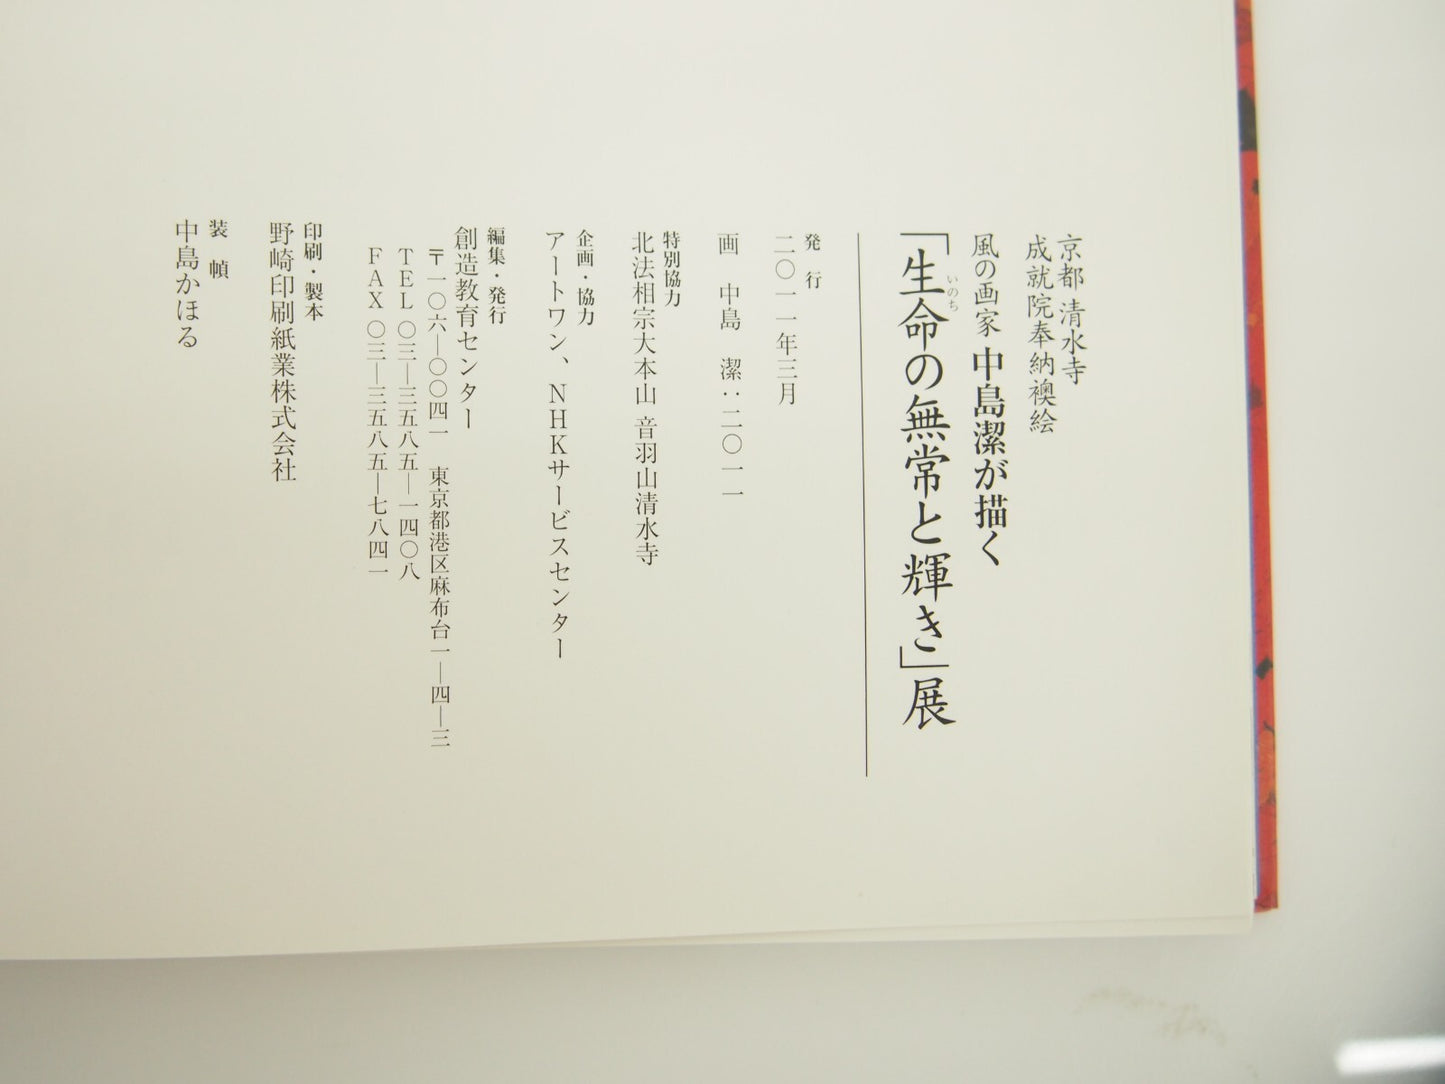 京都 清水寺
成就院奉納襖絵
風の画家 中島潔が描く
「生命の無常と輝き」展
いのち
発 行
二〇一一年三月
画 中島 潔：二〇一一
特別協力
北法相宗大本山 音羽山清水寺
企画・協力
アートワン、NHKサービスセンター
編集・発行
創造教育センター
〒一〇六―〇〇四一 東京都港区麻布台一―四―三
TEL 〇三―三五八五―一四〇八
FAX 〇三―三五八五―七八四一
印刷・製本
野崎印刷紙業株式会社
装 幀
中島かほる